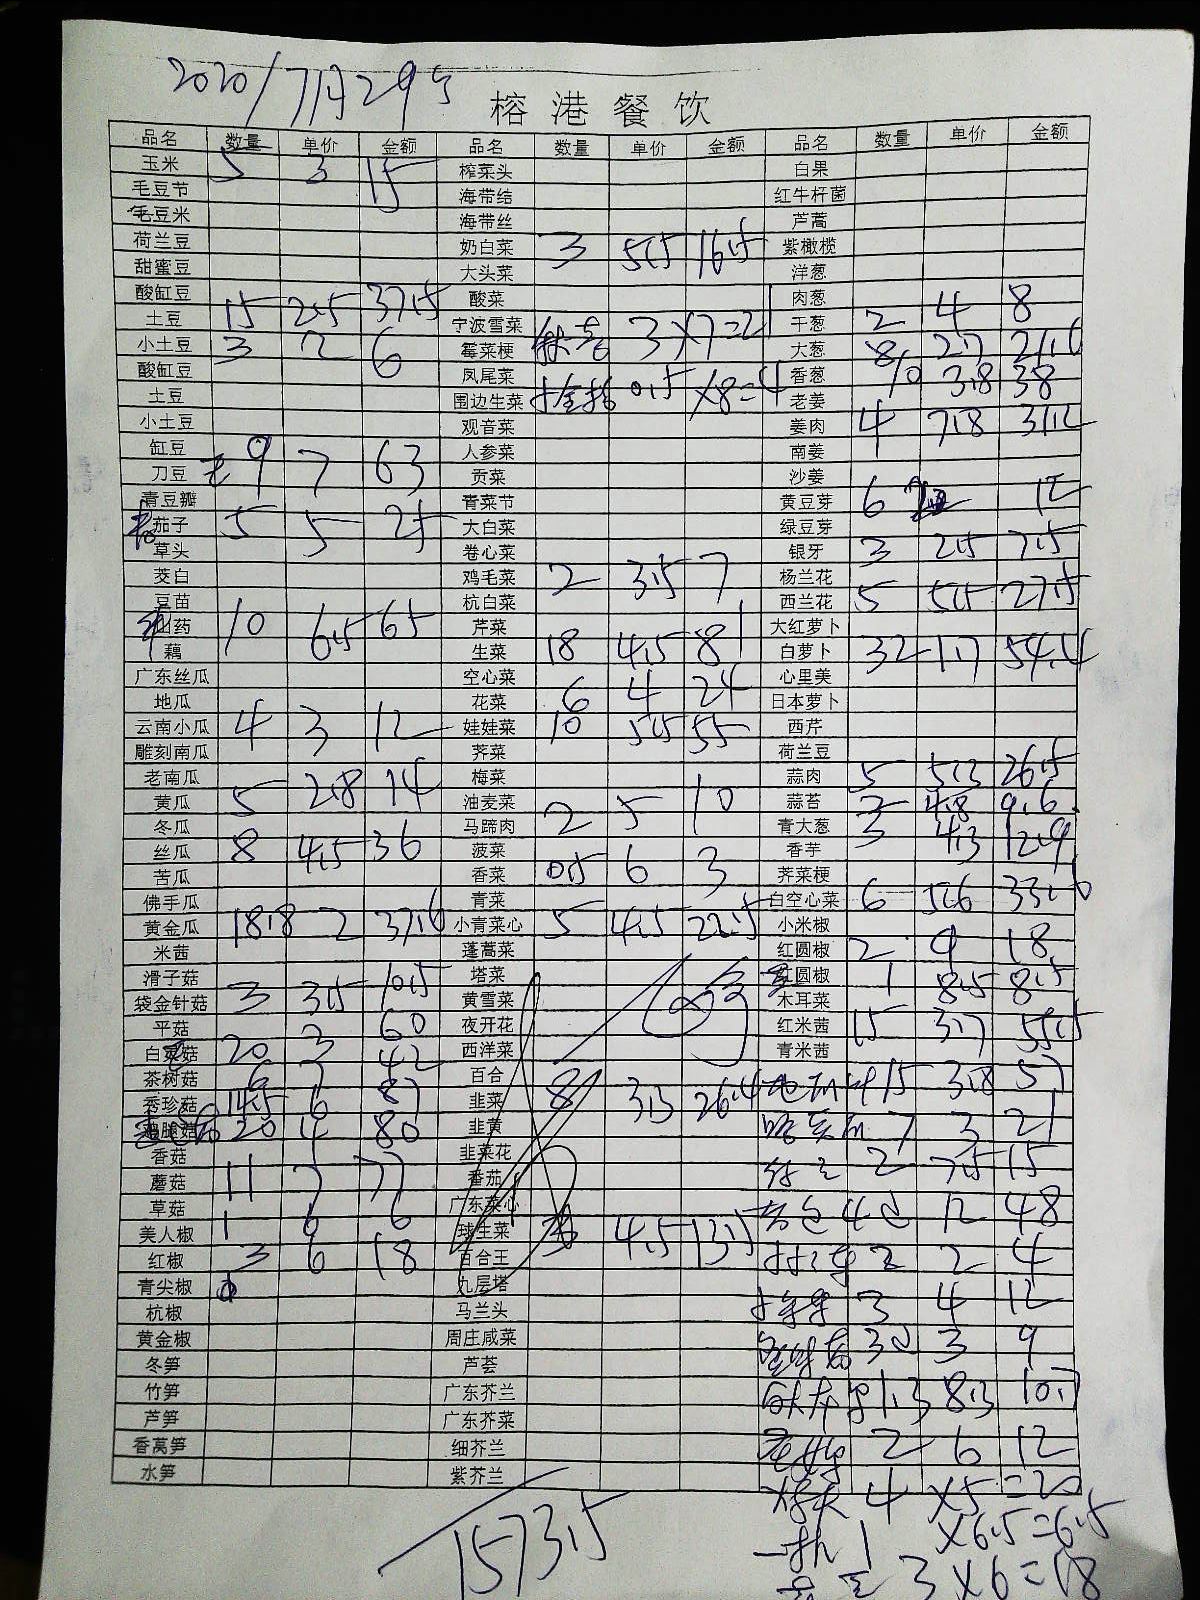 2020/7月29号
榕港餐饮
品名 数量 单价 金额 品名 数量 单价 金额 品名 数量 单价 金额
玉米 5 3 15 榨菜头 白果
毛豆节 海带结 红牛杆菌
毛豆米 海带丝 芦蒿
荷兰豆 奶白菜 3 5.5 16.5 紫橄榄
甜蜜豆 大头菜 洋葱
酸缸豆 15 2.5 37.5 酸菜 肉葱
土豆 宁波雪菜 3×7=21 干葱 2 4 8
小土豆 3 2 6 霉菜梗 大葱 8 2.7 21.6
酸缸豆 凤尾菜 香葱 10 3.8 38
土豆 围边生菜 0.5 ×8=4 老姜
小土豆 观音菜 姜肉 4 7.8 31.2
缸豆 9 7 63 人参菜 南姜
刀豆 贡菜 沙姜
青豆瓣 青菜节 黄豆芽 6 2 12
茄子 5 5 25 大白菜 绿豆芽
草头 卷心菜 银牙 3 2.5 7.5
茭白 鸡毛菜 2 3.5 7 杨兰花
豆苗 杭白菜 西兰花 5 5.5 27.5
山药 10 6.5 65 芹菜 大红萝卜
藕 生菜 18 4.5 81 白萝卜 32 1.7 54.4
广东丝瓜 空心菜 心里美
地瓜 花菜 6 4 24 日本萝卜
云南小瓜 4 3 12 娃娃菜 10 5.5 55 西芹
雕刻南瓜 荠菜 荷兰豆
老南瓜 梅菜 蒜肉 5 5.3 26.5
黄瓜 5 2.8 14 油麦菜 蒜苔 2 4.8 9.6
冬瓜 马蹄肉 2 5 10 青大葱 3 4.3 12.9
丝瓜 8 4.5 36 菠菜 香芋
苦瓜 香菜 0.5 6 3 荠菜梗
佛手瓜 青菜 白空心菜 6 5.6 33.6
黄金瓜 18.8 2 37.6 小青菜心 5 4.5 22.5 小米椒
米茜 蓬蒿菜 红圆椒 2 9 18
滑子菇 塔菜 圆椒 1 8.5 8.5
袋金针菇 3 3.5 10.5 黄雪菜 木耳菜
平菇 夜开花 红米茜 15 3.7 55.5
白灵菇 20 3 60 西洋菜 青米茜
茶树菇 6 7 42 百合 15 3.8 57
秀珍菇 14.5 6 87 韭菜 8 3.3 26.4
20 4 80 韭黄 7 3 21
香菇 韭菜花 2 7.5 15
蘑菇 11 7 77 番茄
草菇 广东菜心 4 12 48
美人椒 1 6 6 球生菜 3 4.5 13.5
红椒 3 6 18 百合王 2 2 4
青尖椒 九层塔
杭椒 马兰头 3 4 12
黄金椒 周庄咸菜 3 3 9
冬笋 芦荟
竹笋 广东芥兰 1.3 8.3 10.7
芦笋 广东芥菜
香莴笋 细芥兰 2 6 12
水笋 紫芥兰
4 ×5=20
1573.5
1 ×6.5=6.5
3×6=18